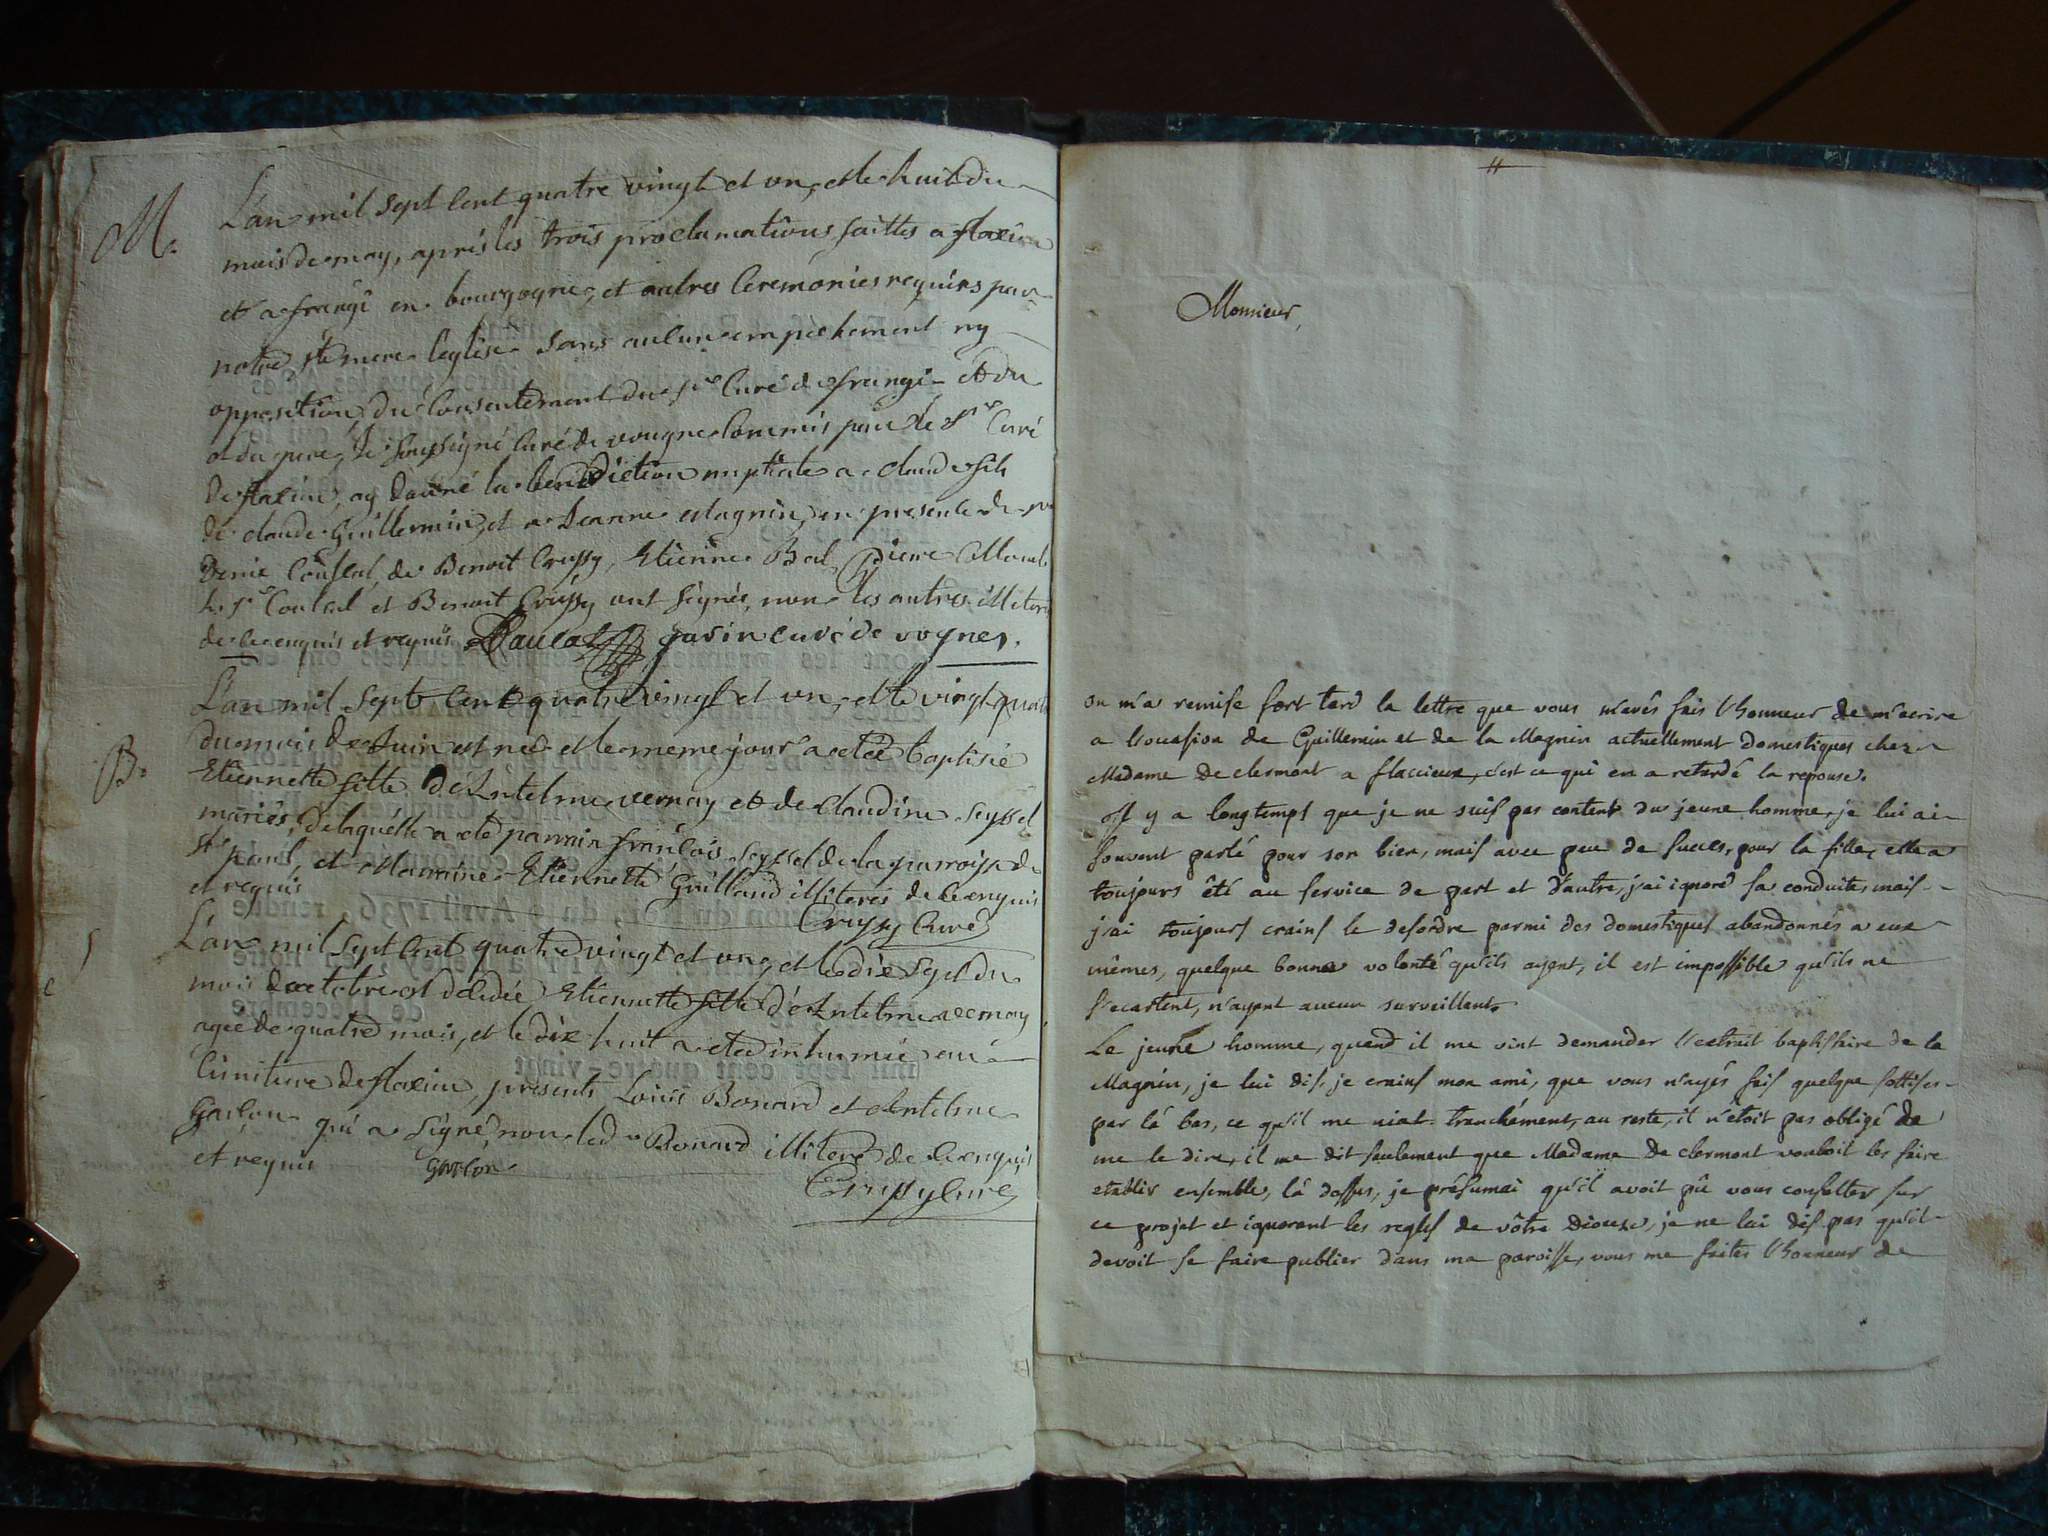 M.
L'an mil sept cent quatre vingt et un, et le huit du
mois de may, aprés les trois proclamations faittes a flaxieu
et a frangi en bourgogne, et autres Ceremonies requises par
notre ste mere l'eglise sans aucun empechement ny
opposition, du Consentement du sr Curé de frangi et du
et du pere, Je soussigné Curé de vougne Commis par le sr Curé
de flaxieu, ay donné la benediction nuptiale a claude fils
de claude Guillermin, et a Jeanne Magnin, en presence de
Coulcal, de Benoit Crussy, Etienne Bal, pierre
le sr Coulcal et Benoit Crussy ont signés, non les autres illiteres
de ce enquis et requis gavin curé de vognes.
B.
L'an mil sept cent quatre vingt et un, et le vingt quatre
du mois de Juin est née et le meme jour a eteé baptisée
Etiennette fille d'Antelme vernay et de Claudine Seyssel
mariés, de laquelle a eté parrain françois Seyssel de la parroisse de
st paul, et Marraine Etiennette Guilland illiterés de ce enquis
et requis
Crussy Curé
S
L'an mil sept cent quatre vingt et un, et le dix sept du
mois d'octobre est décédée Etiennette fille d'Antelme vernay
agée de quatre mois, et le dix huit a eteé inhumée au
Cimitiere de flaxieu, presents Louis Bonard et Antelme
Garçon qui a signé, non led. Bonard illiteré de ce enquis
et requis Garcon
Crussy Curé
Monsieur,
on m'a remise fort tard la lettre que vous m'avés fais l'honneur de m'ecrire
a l'occasion de Guillemin et de la Magnin actuellement domestiques chez
Madame de clermont a flaccieux, c'est ce qui en a retardé la reponse.
Il y a longtemps que je ne suis pas content du jeune homme, je lui ai
souvent parlé pour son bien, mais avec peu de succes, pour la fille, elle a
toujours êté au service de part et d'autre, j'ai ignoré sa conduite, mais
j'ai toujours crains le desordre parmi des domestiques abandonnés a eux
mêmes, quelque bonne volonté qu'ils ayent, il est impossible qu'ils ne
s'ecartent, n'ayant aucun surveillant.
Le jeune homme, quand il me vint demander l'extrait baptistaire de la
Magnin, je lui dis, je crains mon ami, que vous n'ayés fais quelque sottises
par là bas, ce qu'il me niat tranchément, au reste, il n'étoit pas obligé de
me le dire, il me dit seulement que Madame de clermont vouloit les faire
etablir ensemble, là dessus, je présumai qu'il avoit pû vous consulter sur
ce projet et ignorant les regles de vôtre Diocese, je ne lui dis pas qu'il
devoit se faire publier dans ma paroisse, vous me faites l'honneur de